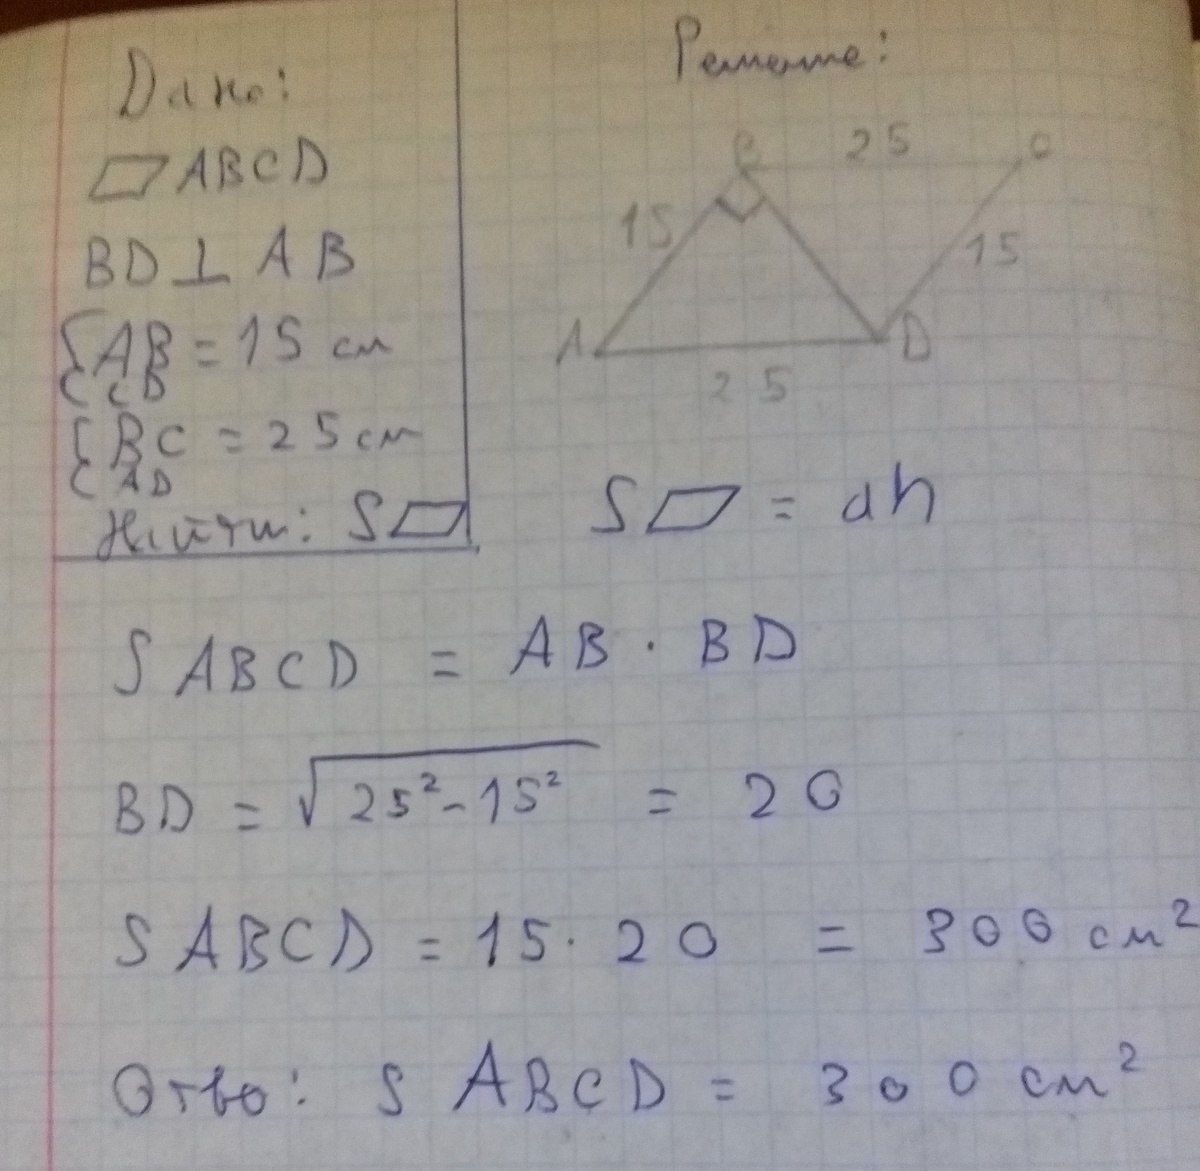 Дано:
▱ ABCD
BD ⊥ AB
{ AB = 15 см
{ CD
{ BC = 25 см
{ AD
Найти: S▱
Решение:
B 25 C
15
15
A D
25
S▱ = ah
S ABCD = AB · BD
BD = √25² - 15² = 20
S ABCD = 15 · 20 = 300 см²
: S ABCD = 300 см²